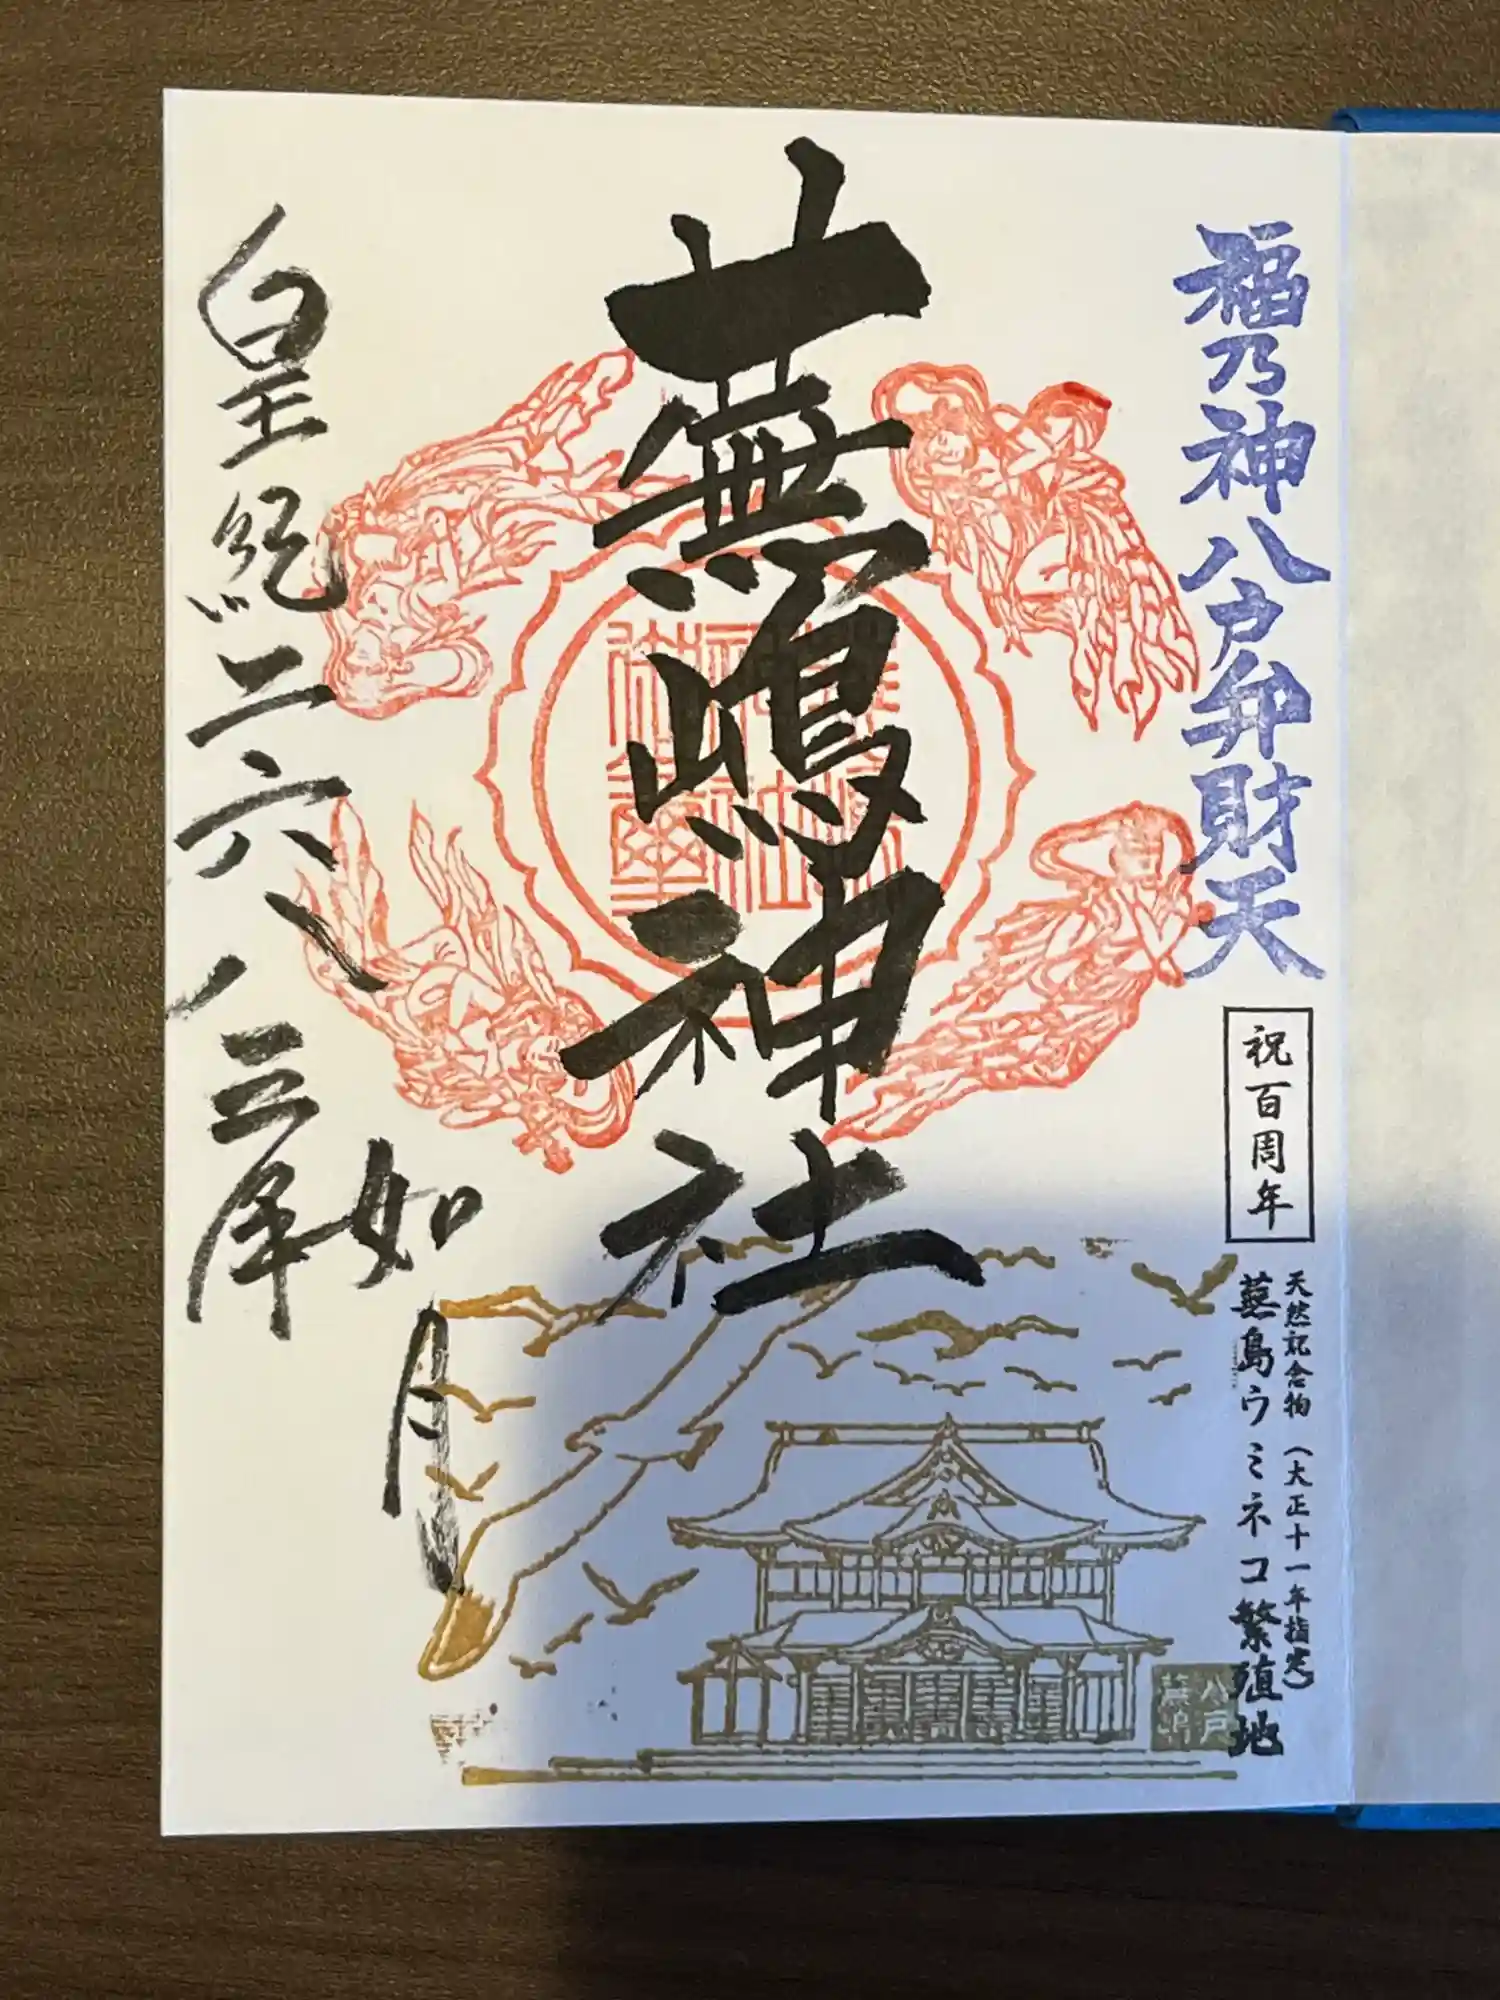 福乃神八戸弁財天
祝百周年
天然記念物（大正十一年指定）
蕪島ウミネコ繁殖地
蕪嶋神社
八戸
蕪嶋
皇紀二六八三年
如月